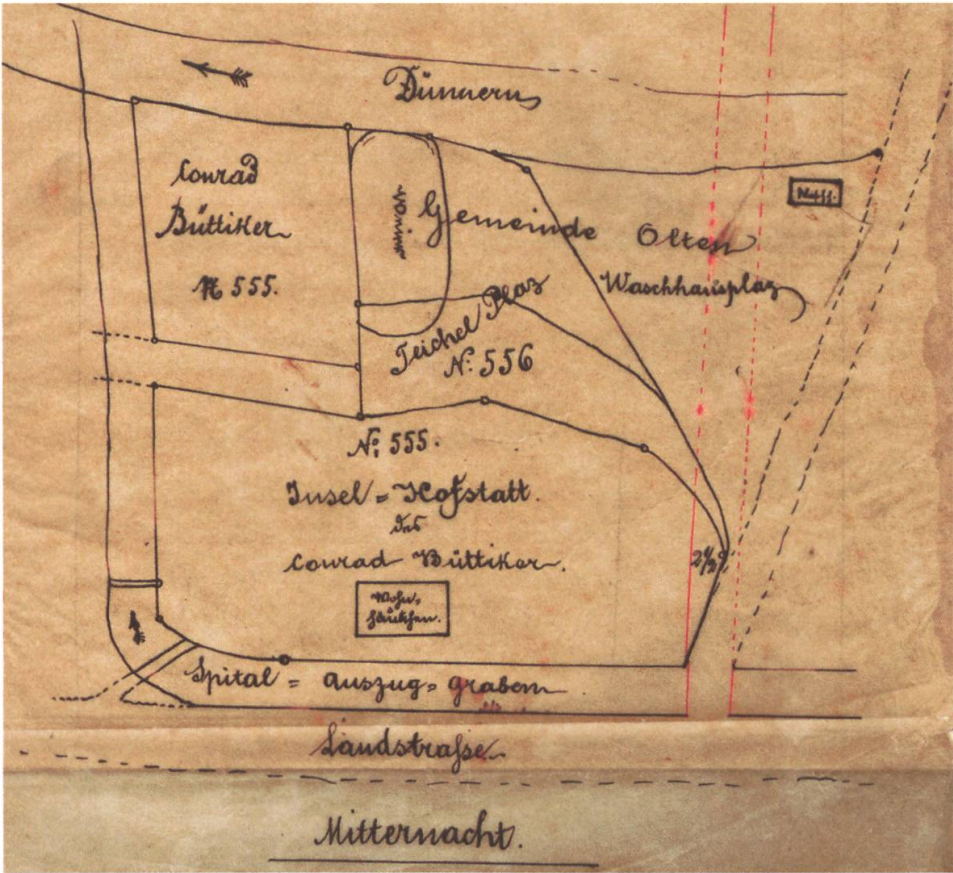 Dünnern
Conrad
Büttiker
N 555.
Gemeinde Olten
Waschhausplaz
Teichel Plaz
N: 556
N: 555.
Insel = Hofstatt.
des
Conrad Büttiker.
2½
Wohn,
häuschen.
Spital = auszug = graben
Landstraße
Mitternacht.